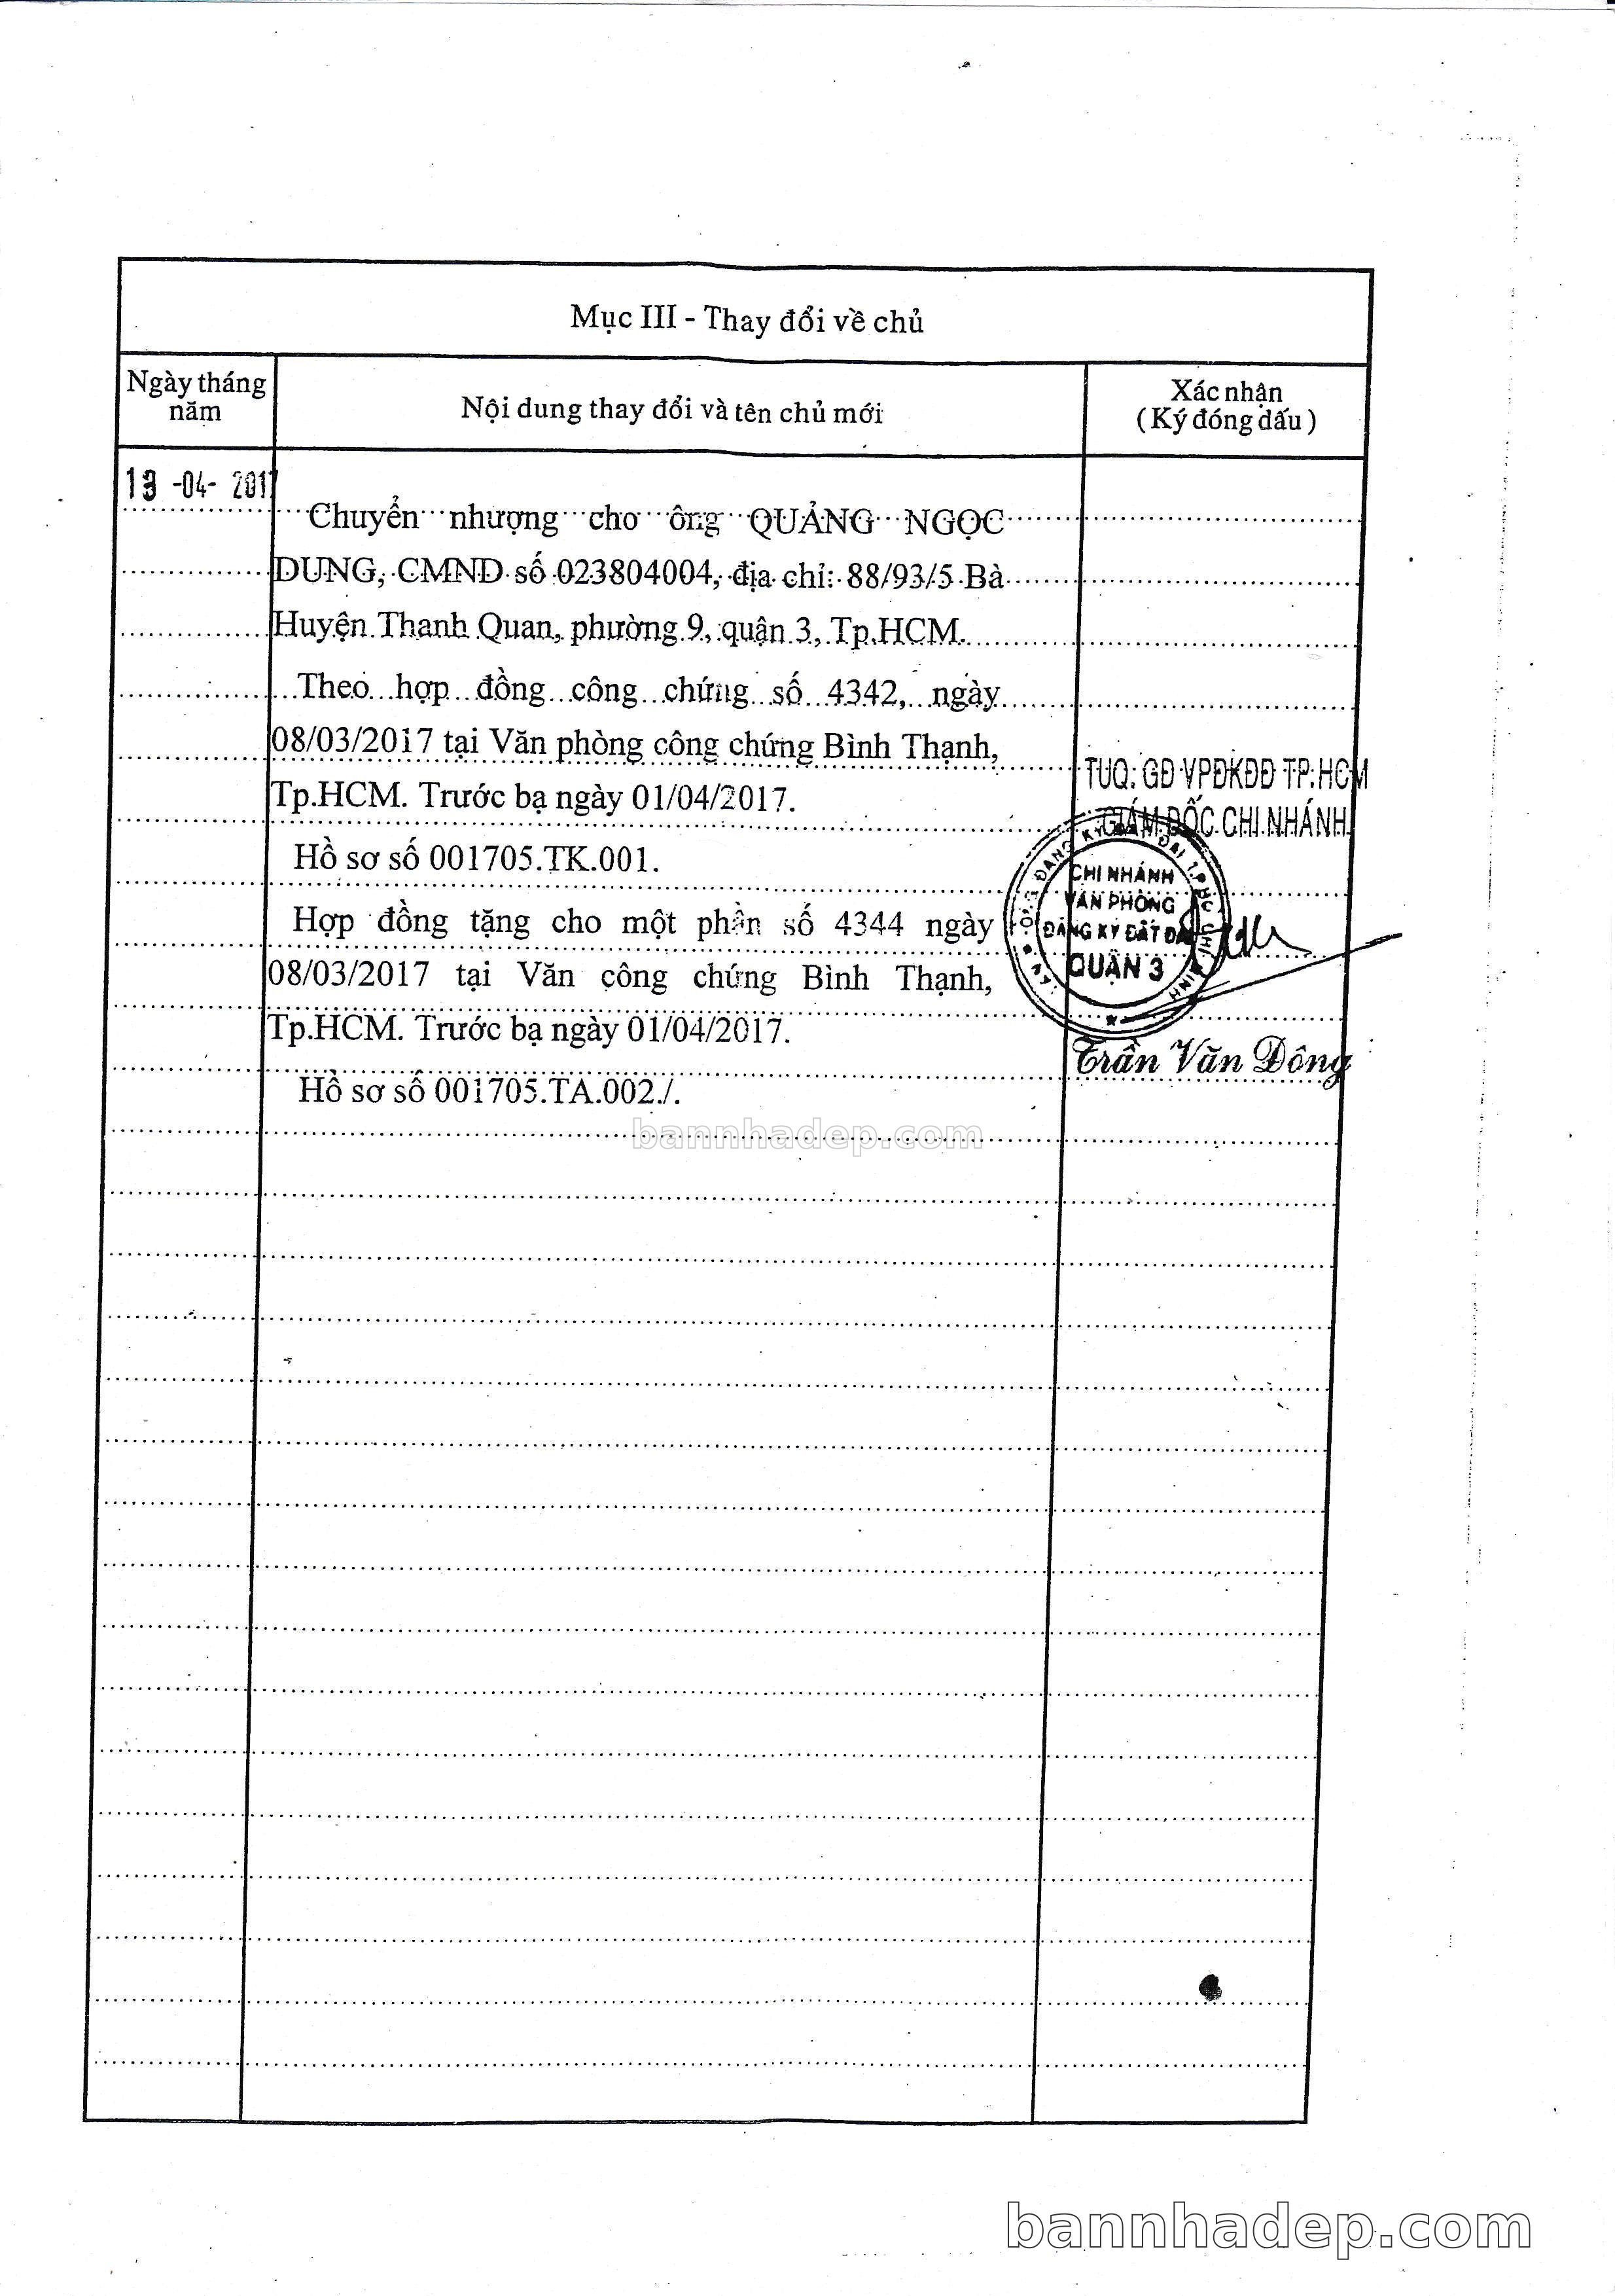 Mục III - Thay đổi về chủ
Ngày tháng
năm
Nội dung thay đổi và tên chủ mới
Xác nhận
( Ký đóng dấu )
13 -04- 2017
Chuyển nhượng cho ông QUẢNG NGỌC
DUNG, CMND số 023804004, địa chỉ: 88/93/5 Bà
Huyện Thanh Quan, phường 9, quận 3, Tp.HCM.
Theo hợp đồng công chứng số 4342, ngày
08/03/2017 tại Văn phòng công chứng Bình Thạnh,
Tp.HCM. Trước bạ ngày 01/04/2017.
Hồ sơ số 001705.TK.001.
Hợp đồng tặng cho một phần số 4344 ngày
08/03/2017 tại Văn công chứng Bình Thạnh,
Tp.HCM. Trước bạ ngày 01/04/2017.
Hồ sơ số 001705.TA.002./.
TUQ. GĐ VPĐKĐĐ TP. HCM
GIÁM ĐỐC CHI NHÁNH
CHI NHÁNH
VĂN PHÒNG
ĐĂNG KÝ ĐẤT ĐAI
QUẬN 3
Trần Văn Dông
bannhadep.com
bannhadep.com